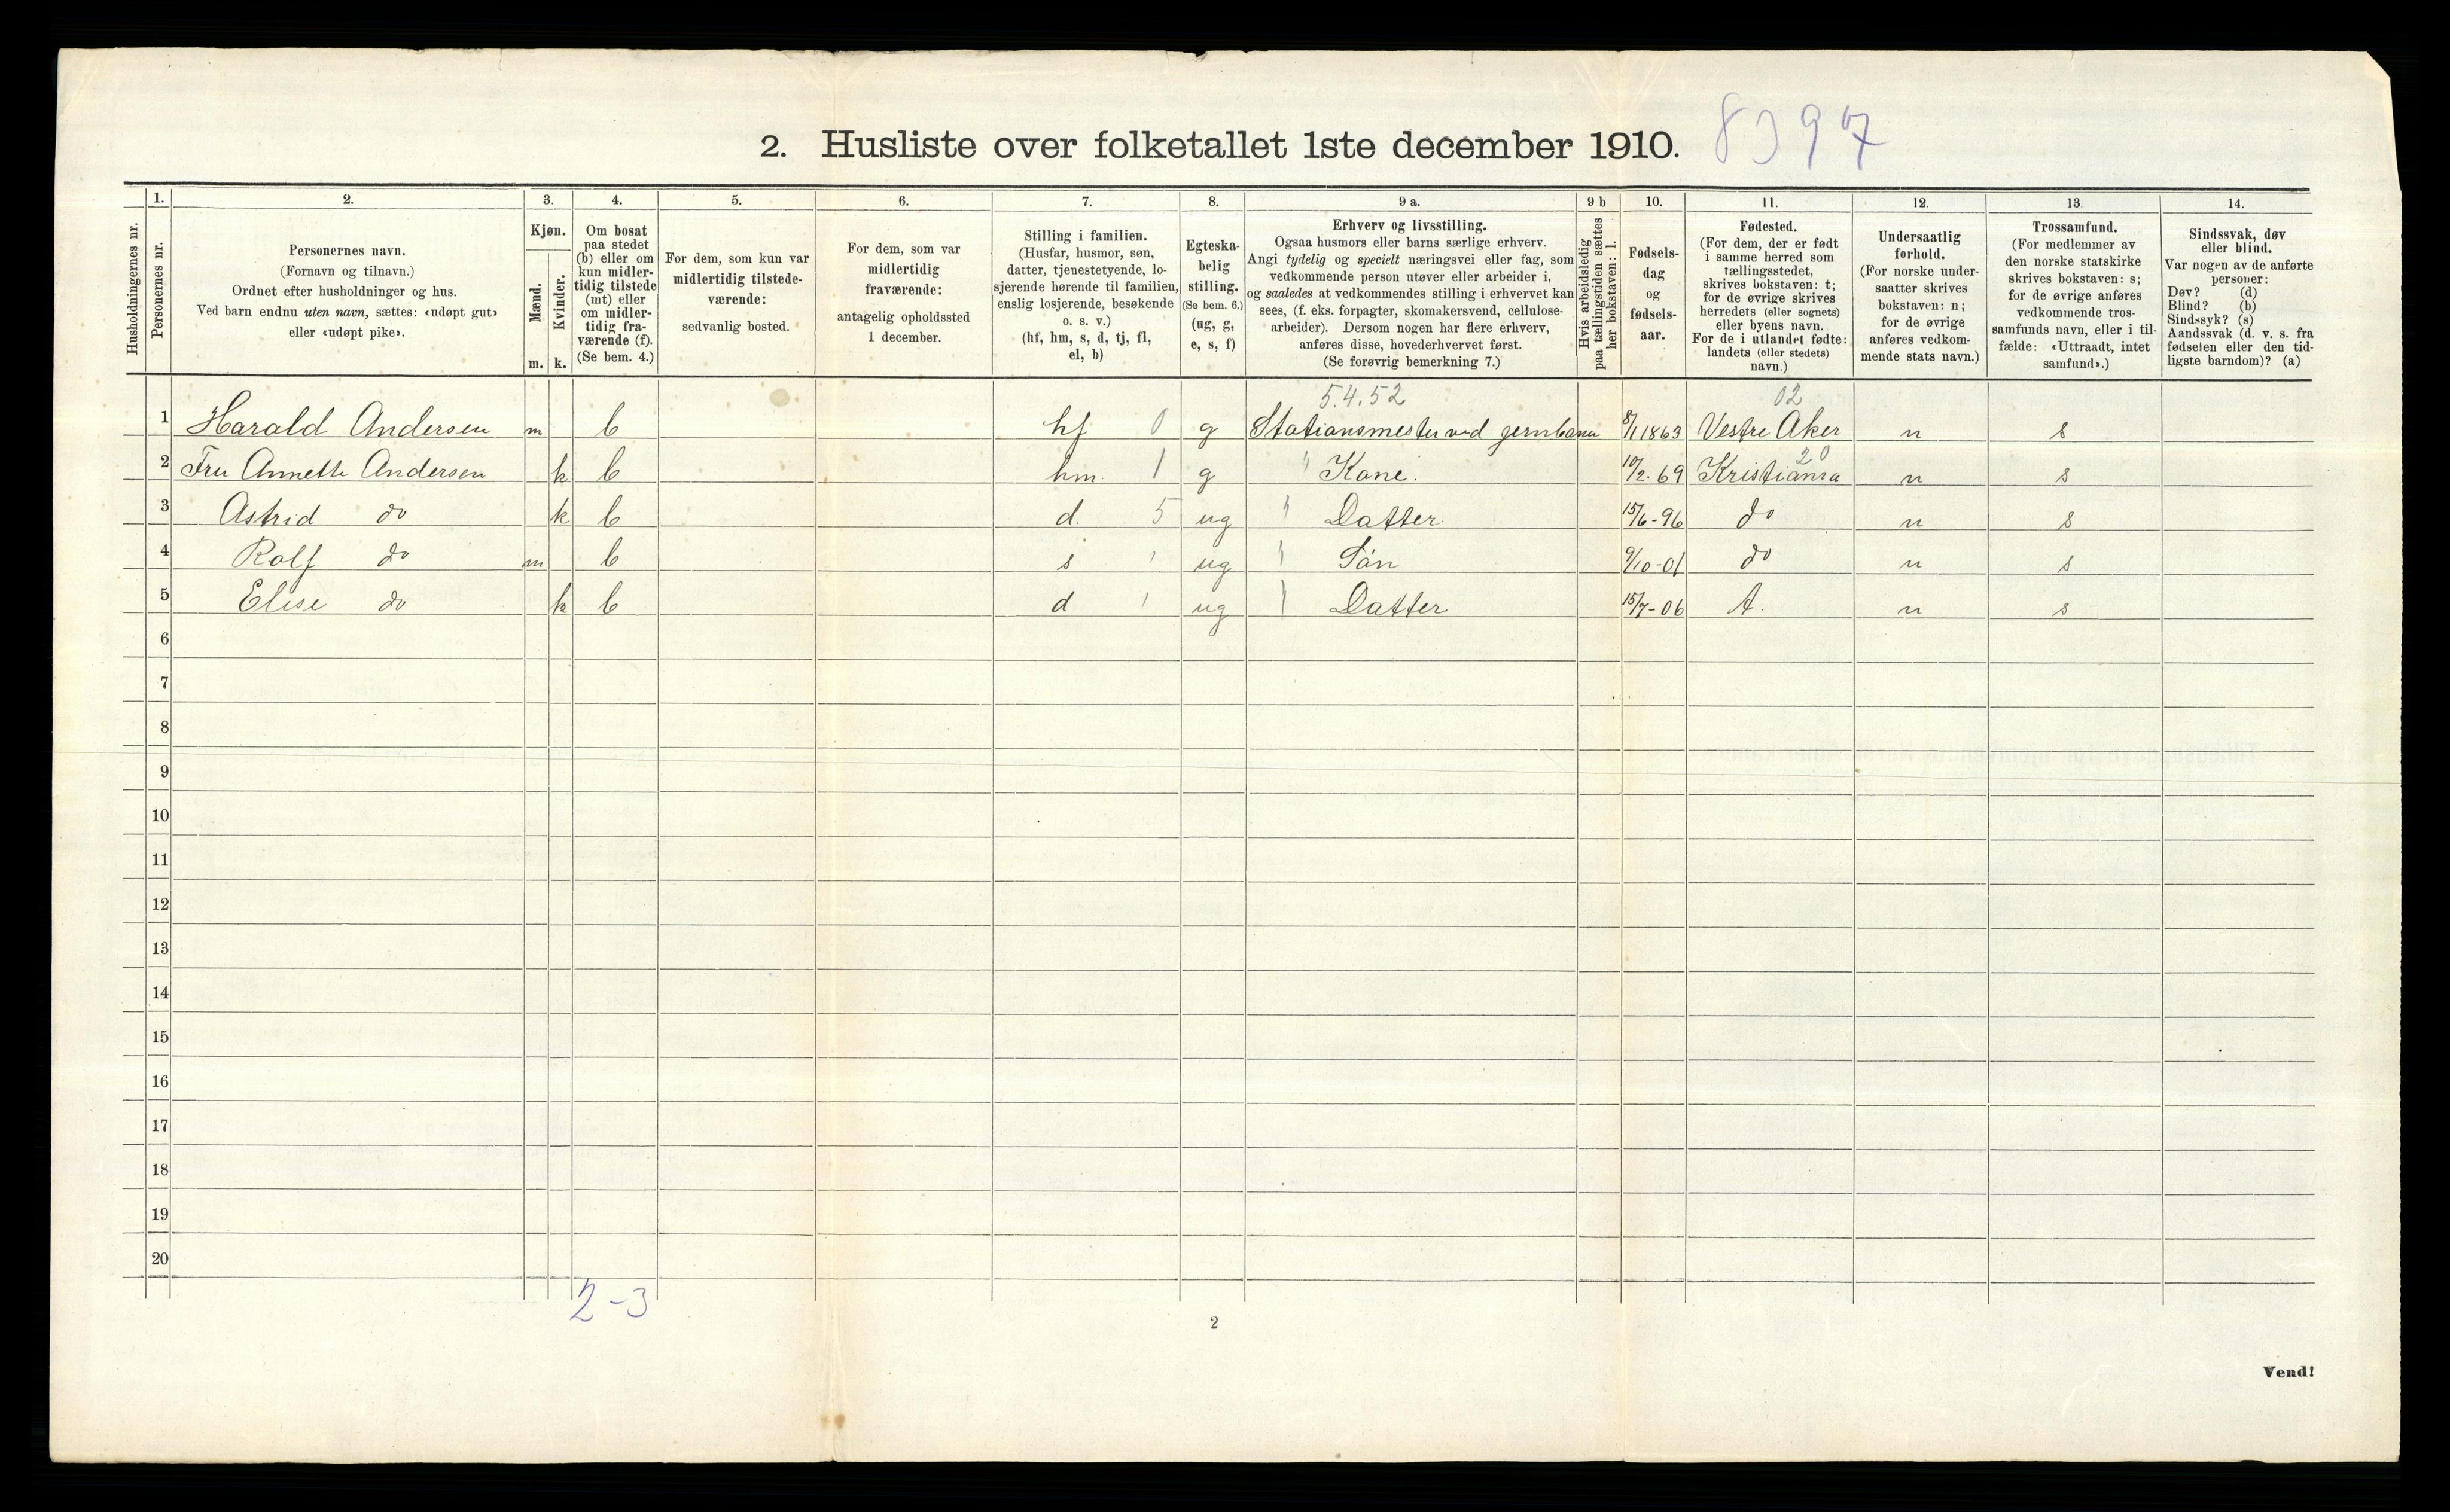 2. Husliste over folketallet 1ste december 1910.
Husholdningernes nr.
1.
Personernes nr.
2.
Personernes navn.
(Fornavn og tilnavn.)
Ordnet efter husholdninger og hus.
Ved barn endnu uten navn, sættes: «udøpt gut»
eller «udøpt pike».
3.
Kjøn.
Mænd.
Kvinder.
m. k.
4.
Om bosat
paa stedet
(b) eller om
kun midler-
tidig tilstede
(mt) eller
om midler-
tidig fra-
værende (f).
(Se bem. 4.)
5.
For dem, som kun var
midlertidig tilstede-
værende:
sedvanlig bosted.
6.
For dem, som var
midlertidig
fraværende:
antagelig opholdssted
1 december.
7.
Stilling i familien.
(Husfar, husmor, søn,
datter, tjenestetyende, lo-
sjerende hørende til familien,
enslig losjerende, besøkende
o. s. v.)
(hf, hm, s, d, tj, fl,
el, b)
8.
Egteska-
belig
stilling.
(Se bem. 6.)
(ug, g,
e, s, f)
9 a.
Erhverv og livsstilling.
Ogsaa husmors eller barns særlige erhverv.
Angi tydelig og specielt næringsvei eller fag, som
vedkommende person utøver eller arbeider i,
og saaledes at vedkommendes stilling i erhvervet kan
sees, (f. eks. forpagter, skomakersvend, cellulose-
arbeider). Dersom nogen har flere erhverv,
anføres disse, hovederhvervet først.
(Se forøvrig bemerkning 7.)
9 b
Hvis arbeidsledig
paa tællingstiden sættes
her bokstaven: l.
10.
Fødsels-
dag
og
fødsels-
aar.
11.
Fødested.
(For dem, der er født
i samme herred som
tællingsstedet,
skrives bokstaven: t;
for de øvrige skrives
herredets (eller sognets)
eller byens navn.
For de i utlandet fødte:
landets (eller stedets)
navn.)
12.
Undersaatlig
forhold.
(For norske under-
saatter skrives
bokstaven: n;
for de øvrige
anføres vedkom-
mende stats navn.)
13.
Trossamfund.
(For medlemmer av
den norske statskirke
skrives bokstaven: s;
for de øvrige anføres
vedkommende tros-
samfunds navn, eller i til-
fælde: «Uttraadt, intet
samfund».)
14.
Sindssvak, døv
eller blind.
Var nogen av de anførte
personer:
Døv? (d)
Blind? (b)
Sindssyk? (s)
Aandssvak (d. v. s. fra
fødselen eller den tid-
ligste barndom)? (a)
5.4.52 02
1 Harald Andersen m b hf 0 g Stationsmester ved jernbanen 8/11 1863 Vestre Aker n s
20
2 Fru Annette Andersen k b hm. 1 g " Kone. 10/2.69 Kristiania n s
3 Astrid do k b d. 5 ug " Datter 15/6-96 do n s
4 Rolf do m b s ug " Søn 9/10-01 do n s
5 Elise do k b d ug Datter 15/7-06 t. n s
6
7
8
9
10
11
12
13
14
15
16
17
18
19
20
2-3
2
Vend!